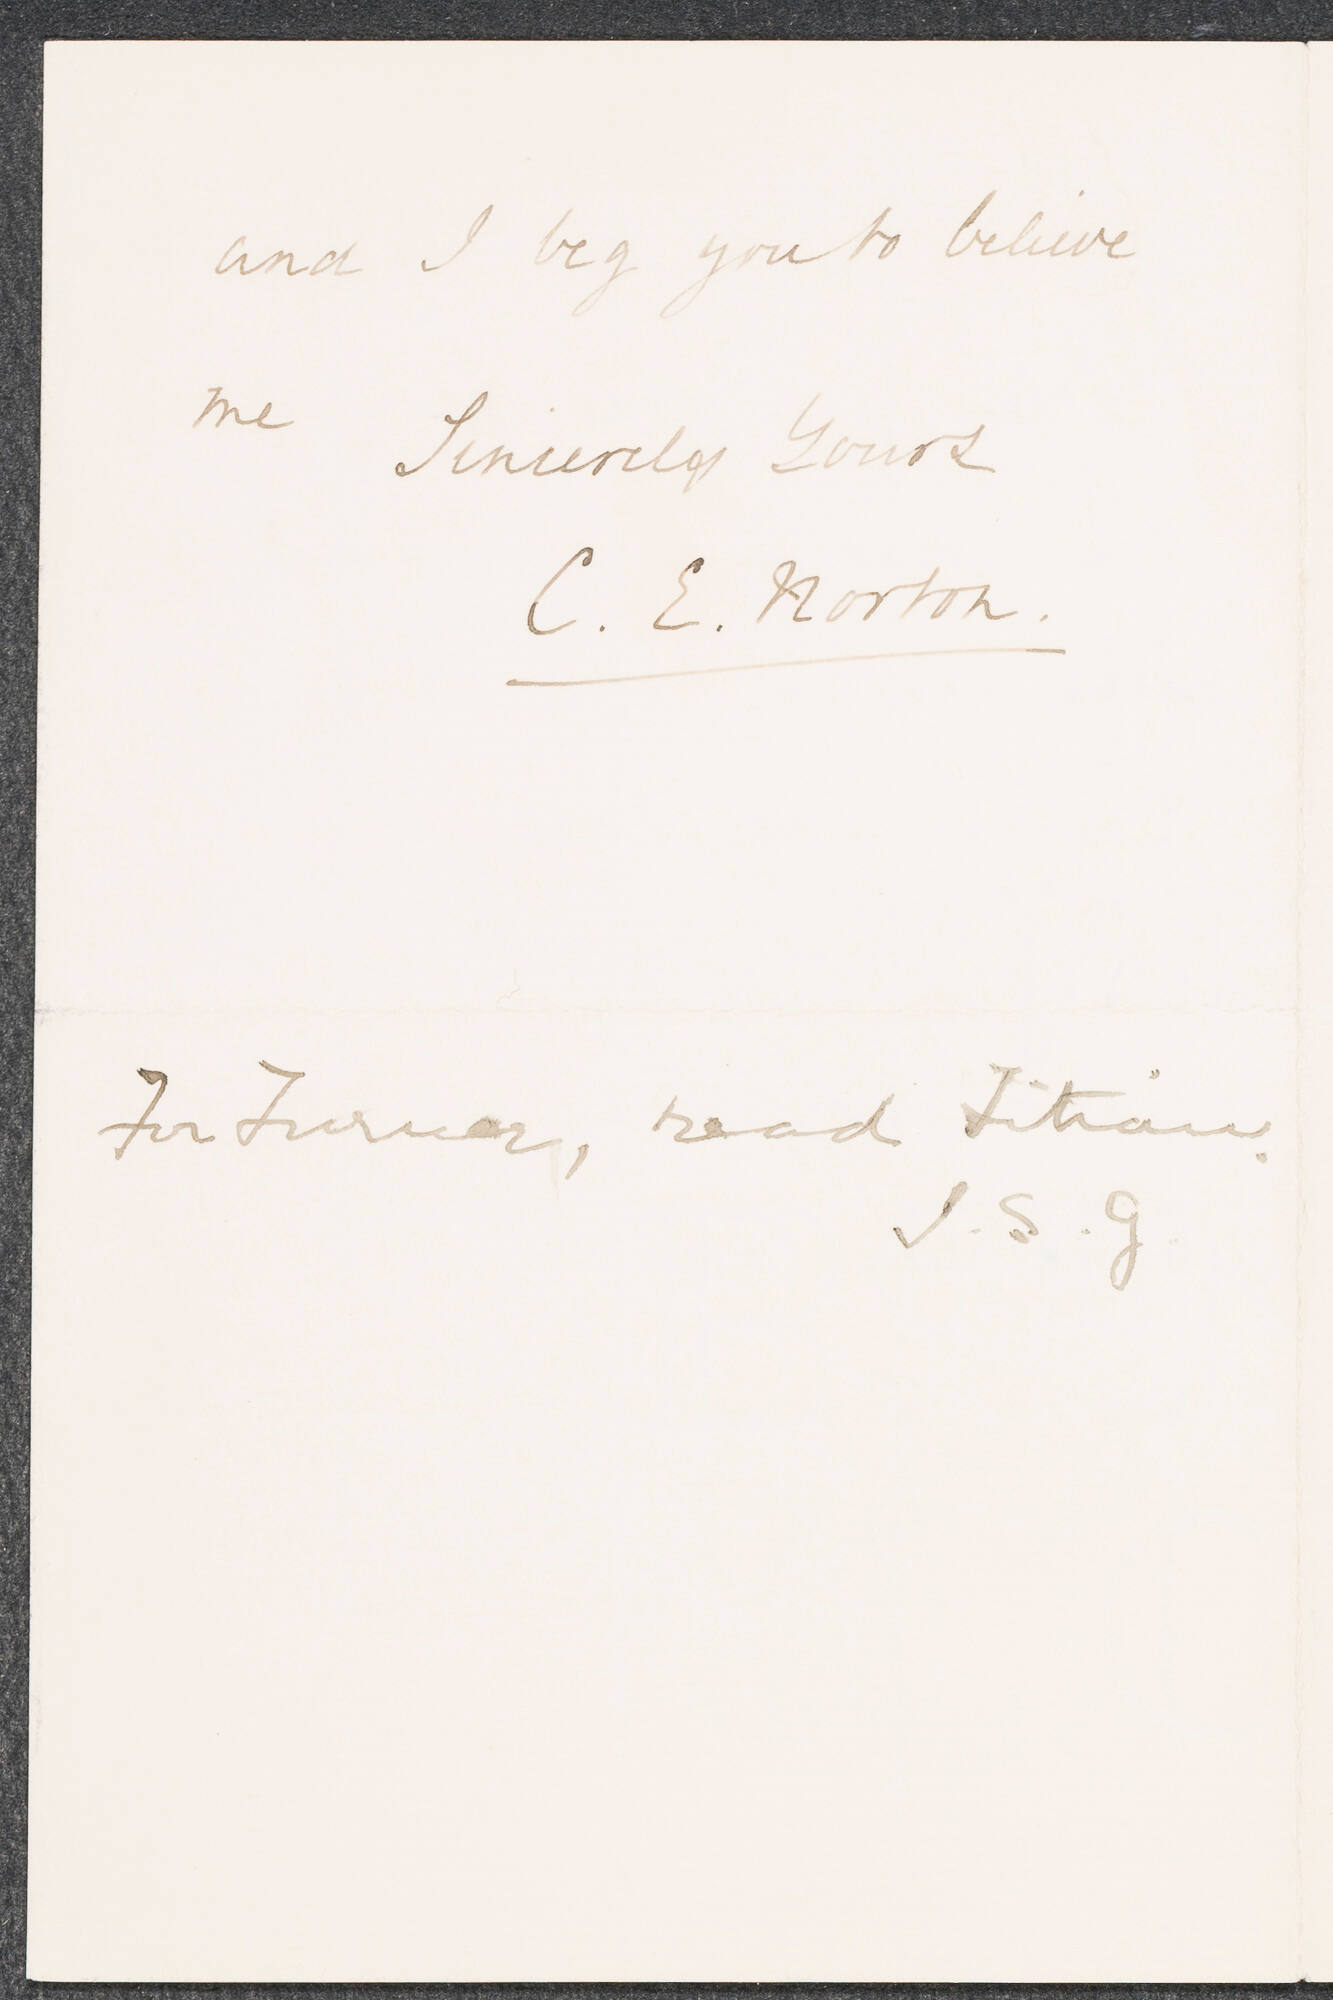 and I beg you to believe
me Sincerely Yours
C. E. Norton.
For Turner, read Titian.
I. S. G.